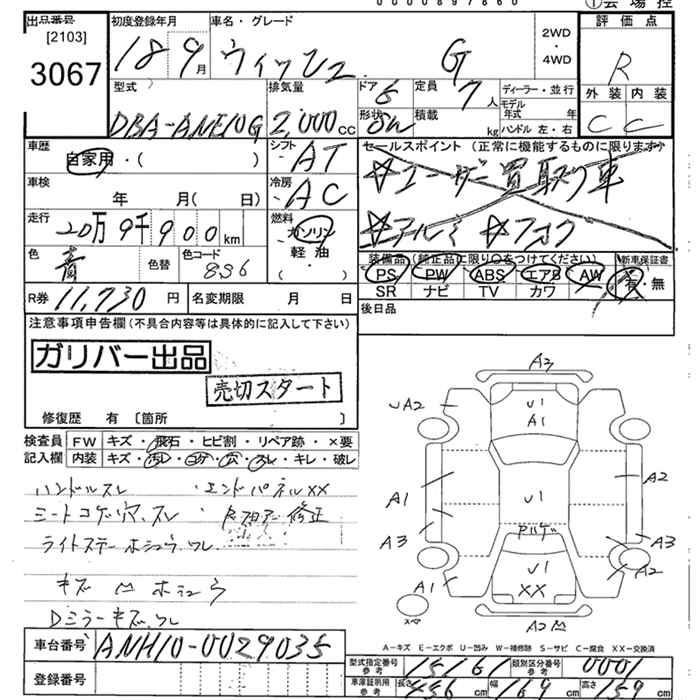 0000897860
①会場控
出品番号 初度登録年月 車名・グレード 2WD・4WD 評価点
[2103]
3067 18 9月 ウィッシュ G R
型式 排気量 ドア 5 定員 7人 ディーラー・並行 外装 内装
DBA-ANE10G 2,000cc 形状 SW 積載 kg モデル年式 年 ハンドル 左・右 C C
車歴 自家用・( ) シフト AT セールスポイント(正常に機能するものに限ります)
車検 年 月( 日) 冷房 AC ☆ユーザー買取り車
走行 20万9千900km 燃料 ガソリン・軽油・( ) ☆アルミ ☆フォグ
色 青 色替 色コード 8S6 装備品(純正品に限り○をつけてください) 新車保証書
PS PW ABS エアB AW 有・無
SR ナビ TV カワ
R券 11,730円 名変期限 月 日 後日品
注意事項申告欄(不具合内容等は具体的に記入して下さい)
ガリバー出品
売切スタート
修復歴 有〔箇所 〕
検査員記入欄 FW キズ・飛石・ヒビ割・リペア跡・×要
内装 キズ・汚レ・コゲ・穴・スレ・キレ・破レ
ハンドルスレ ・エンドパネルXX
シートコゲ、スレ 修正
ライトステー ホシュウ、ワレ
キズ 凹 ホシュウ
Dミラーキズ、ワレ
A3
UA2 U1 A1
A1 U1 A2
A3 A3
A1 U1 XX A2
スペア A2凹
車台番号 ANH10-0029035
登録番号
A=キズ E=エクボ U=凹み W=補修跡 S=サビ C=腐食 XX=交換済
型式指定番号 参考 15161 類別区分番号 参考 0001
車庫証明用 参考 長さ 456cm 幅 169cm 高さ 159cm